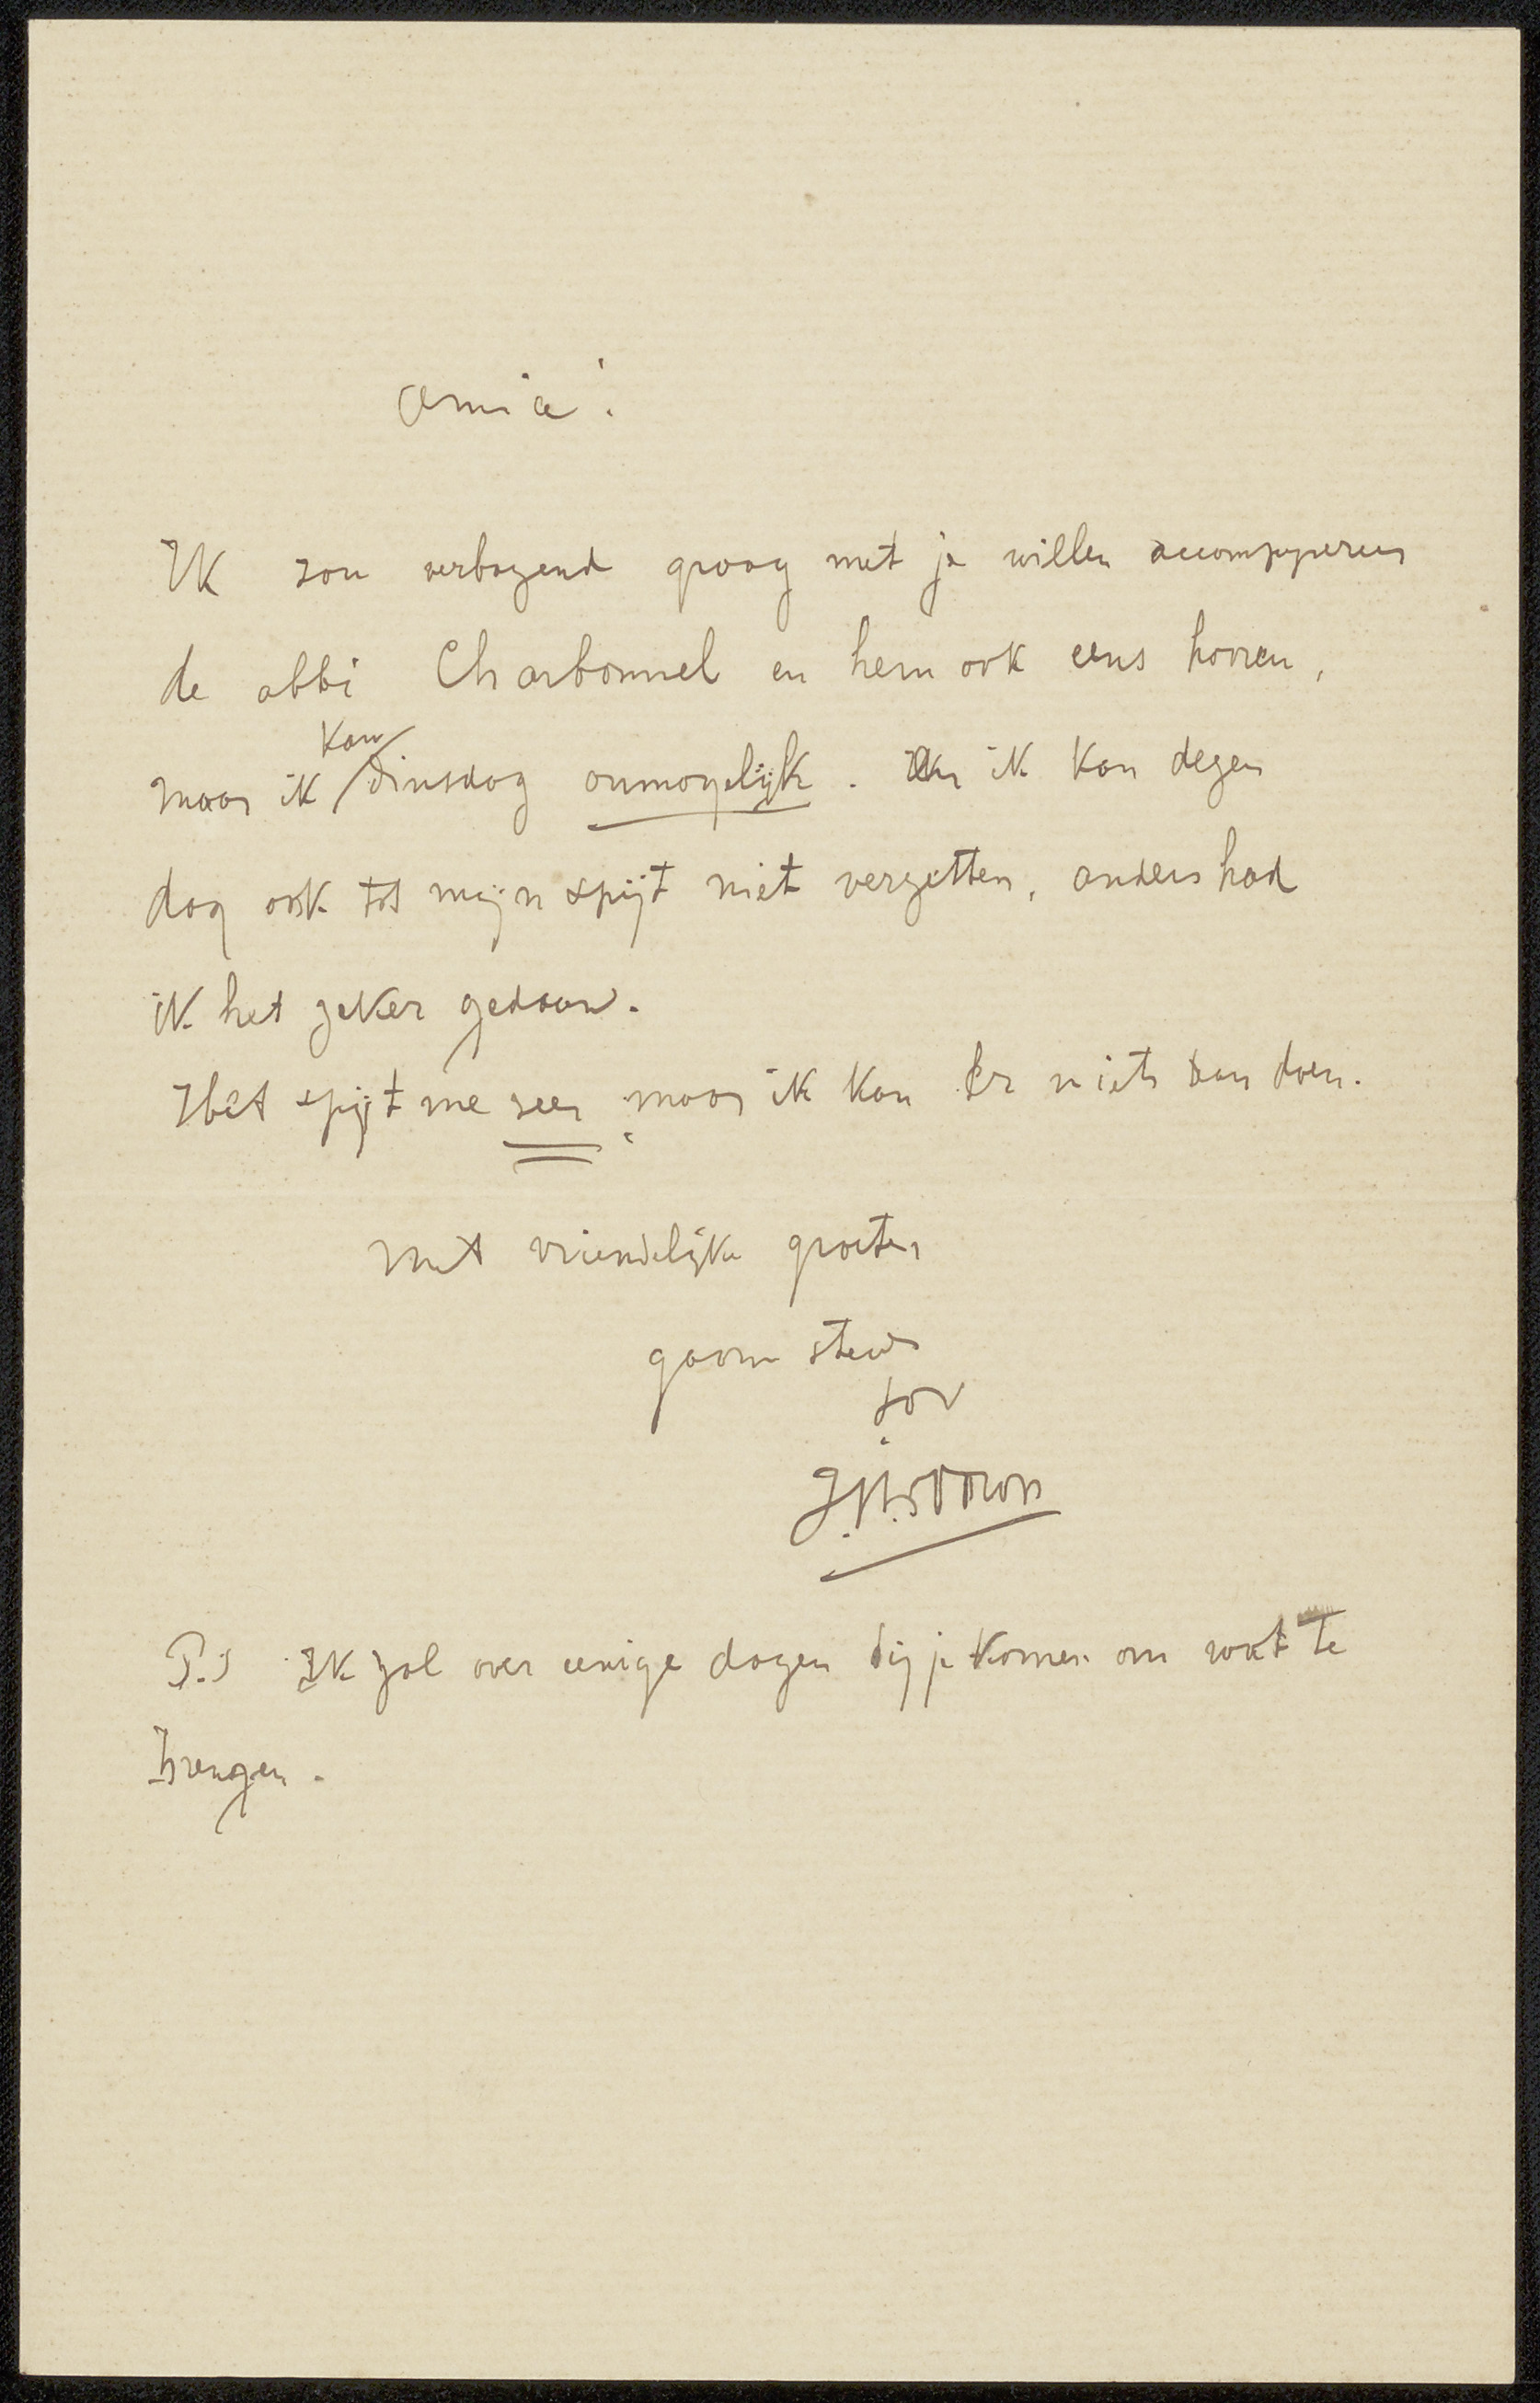 Amice!
Ik zou verbazend graag met je willen
de abbé Charbonnel en hem ook eens hooren,
kan
maar ik dinsdag onmogelijk. ik kan dezen
dag ook tot mijn spijt niet verzetten, anders had
ik het zeker gedaan.
Het spijt me zeer maar ik kan er niets aan doen.
Met vriendelijke groeten
gaarne steeds
tov
P.S Ik zal over eenige dagen bij je komen om wat te
brengen.